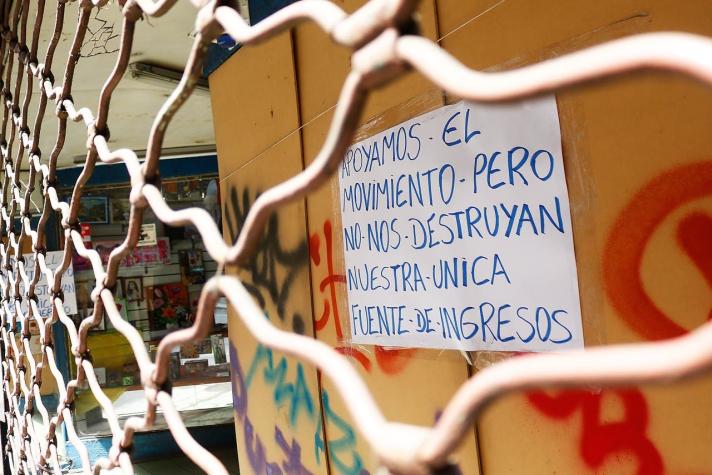 APOYAMOS-EL
MOVIMIENTO-PERO
NO-NOS-DESTRUYAN
NUESTRA-UNICA
FUENTE-DE-INGRESOS